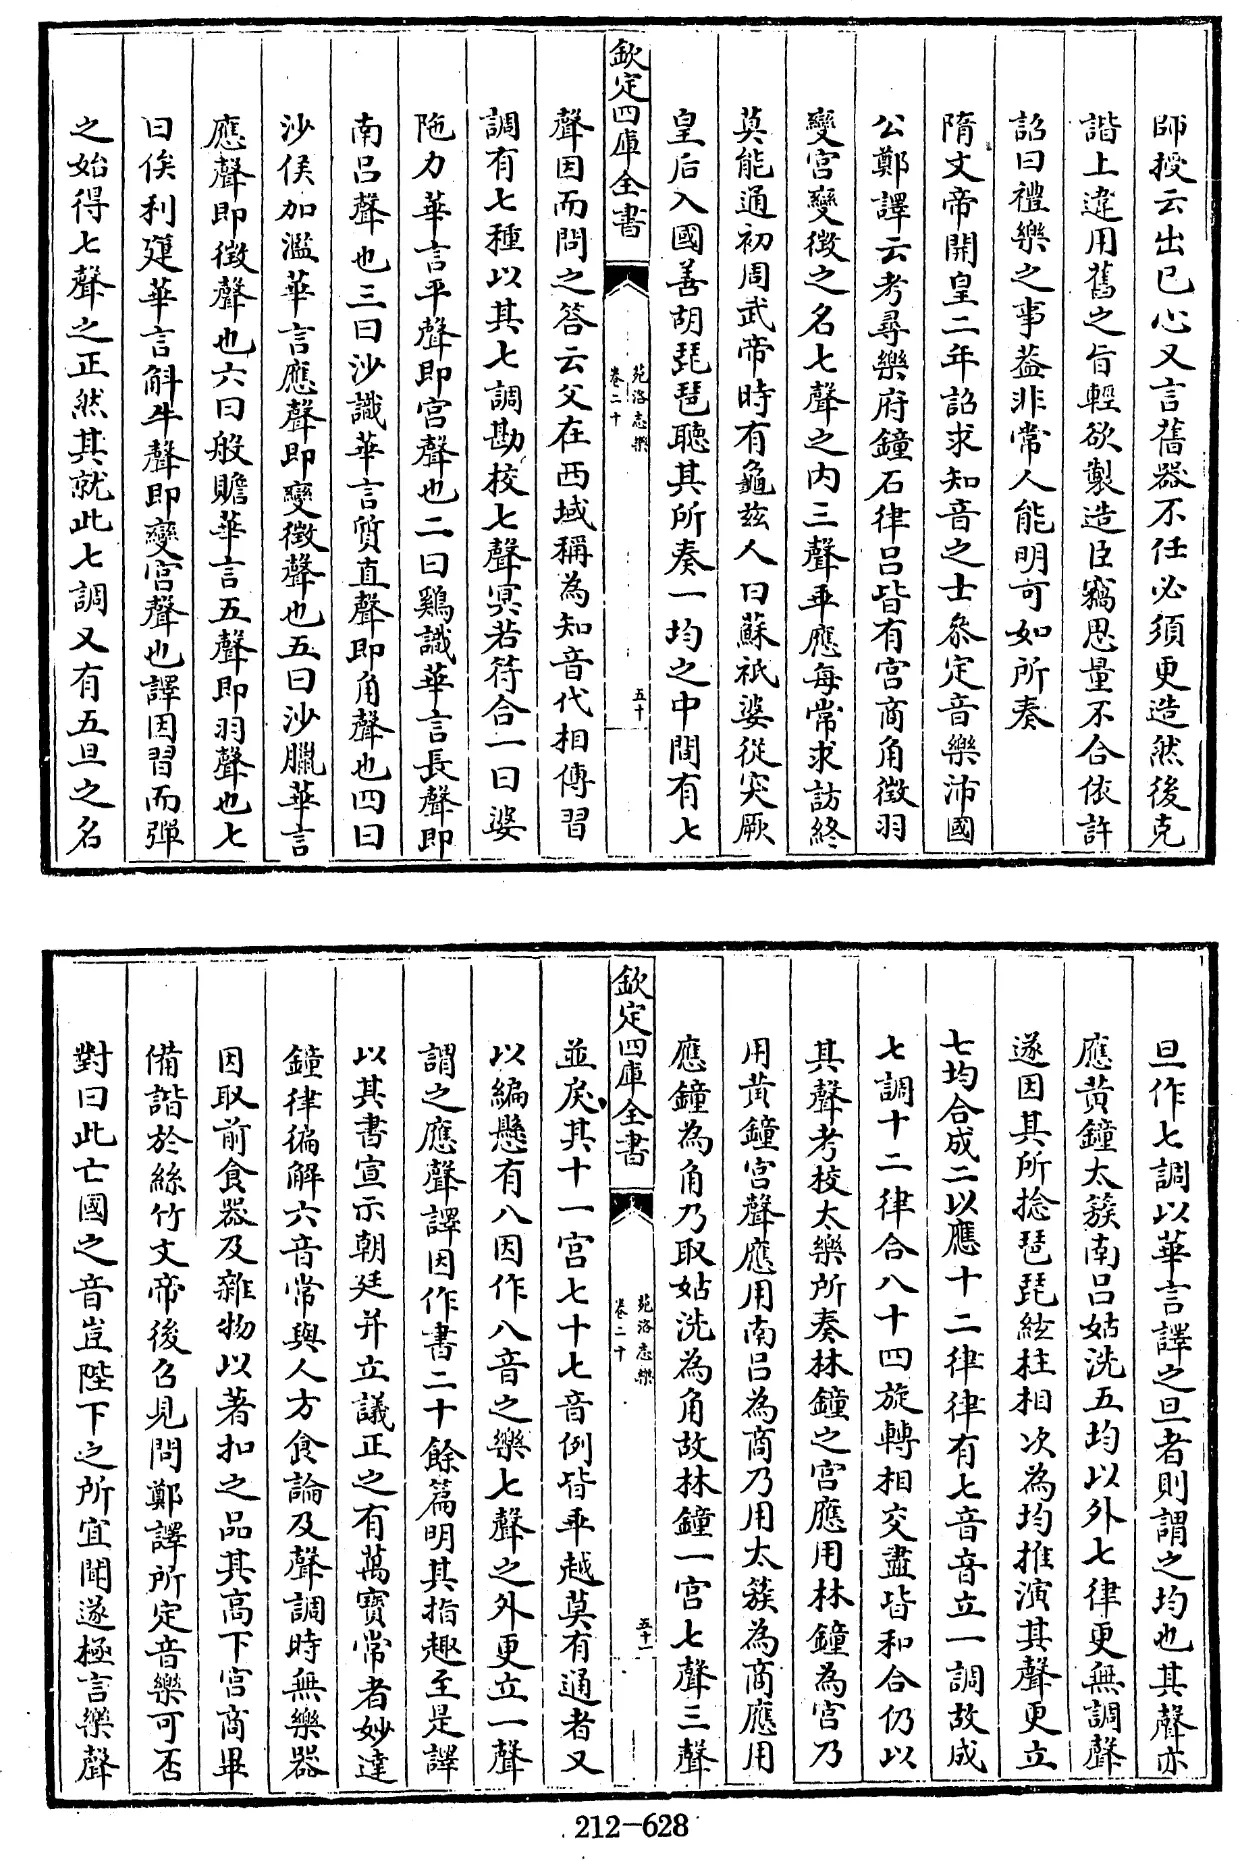 師授云出已心又言舊器不任必須更造然後克
諧上違用舊之旨輕欲製造臣竊思量不合依許
詔曰禮樂之事葢非常人能明可如所奏
隋文帝開皇二年詔求知音之士叅定音樂沛國
公鄭譯云考尋樂府鐘石律呂皆有宮商角徵羽
變宮變徵之名七聲之内三聲乖應每常求訪終
莫能通初周武帝時有龜兹人曰蘇祇婆從突厥
皇后入國善胡琵琶聽其所奏一均之中間有七
欽定四庫全書
苑洛志樂
卷二十
五十
聲因而問之答云父在西域稱為知音代相傳習
調有七種以其七調勘校七聲冥若符合一曰婆
陁力華言平聲即宮聲也二曰鷄識華言長聲即
南呂聲也三曰沙識華言質直聲即角聲也四曰
沙侯加濫華言應聲即變徵聲也五曰沙臘華言
應聲即徵聲也六曰般贍華言五聲即羽聲也七
曰俟利𥰡華言斛牛聲即變宮聲也譯因習而彈
之始得七聲之正然其就此七調又有五旦之名
旦作七調以華言譯之旦者則謂之均也其聲亦
應黄鐘太簇南呂姑洗五均以外七律更無調聲
遂因其所捻琵琶絃柱相次為均推演其聲更立
七均合成二以應十二律律有七音音立一調故成
七調十二律合八十四旋轉相交盡皆和合仍以
其聲考校太樂所奏林鐘之宮應用林鐘為宮乃
用黄鐘宮聲應用南呂為商乃用太簇為商應用
應鐘為角乃取姑洗為角故林鐘一宮七聲三聲
欽定四庫全書
苑洛志樂
卷二十
五十一
並戾其十一宮七十七音例皆乖越莫有通者又
以編懸有八因作八音之樂七聲之外更立一聲
謂之應聲譯因作書二十餘篇明其指趣至是譯
以其書宣示朝廷并立議正之有萬寳常者妙達
鐘律徧解六音常與人方食論及聲調時無樂器
因取前食器及雜物以著扣之品其高下宮商畢
備諧於絲竹文帝後召見問鄭譯所定音樂可否
對曰此亡國之音豈陛下之所宜聞遂極言樂聲
212-628